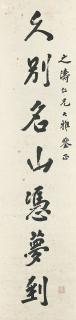 之濤仁兄大雅鑒正
久別名山憑夢到